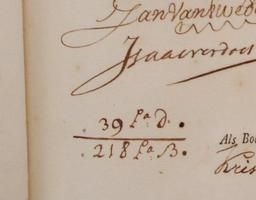 Jan van kwede
Isaac verdoes
39 fa. D.
218 fa. B.
Als Bo
Kris